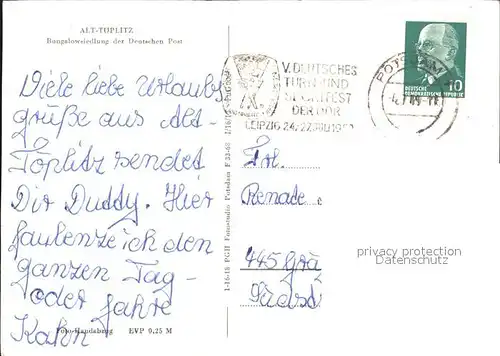 ALT-TÖPLITZ
Bungalowsiedlung der Deutschen Post
Viele liebe Urlaubs
grüße aus Alt-
Töplitz sendet
Dir Duddy. Hier
faulenze ich den
ganzen Tag -
oder fahre
Kahn
Foto-Handabzug EVP 0,25 M
1-16-18 PGH Fotostudio Potsdam P 33-68
V. DEUTSCHES
TURN- UND
SPORTFEST
DER DDR
LEIPZIG 24.-27. JULI 1969
POTSDAM
10
DEUTSCHE
DEMOKRATISCHE REPUBLIK
Frl.
Renate
445 Grä
privacy protection
Datenschutz